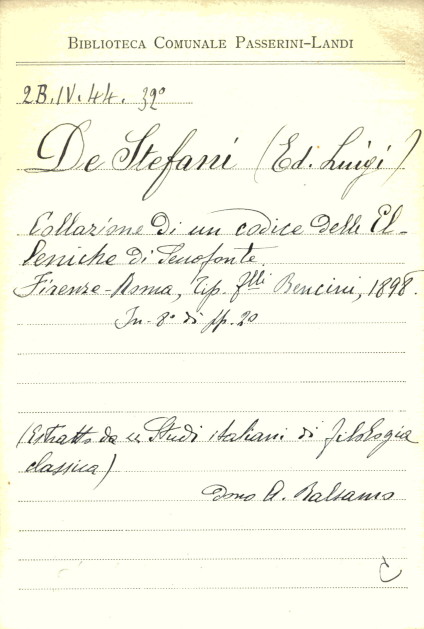 BIBLIOTECA COMUNALE PASSERINI-LANDI
2B.IV.44. 39º
De Stefani (Ed. Luigi)
Collazione di un codice delle El-
leniche di Senofonte.
Firenze-Roma, Tip. flli Bencini, 1898.
In-8º di pp. 20
(Estratto da "Studi italiani di filologia
classica)
Dono A. Balsamo
C